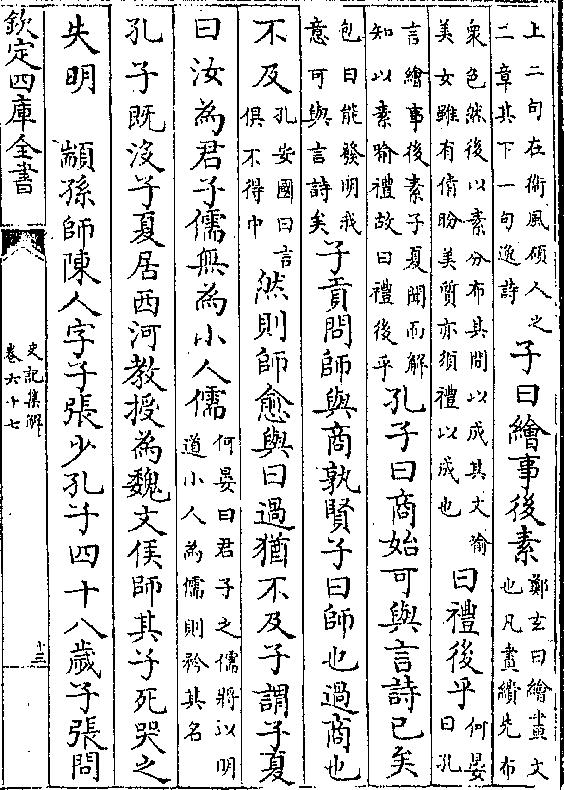 上二句在衛風碩人之二章其下一句逸詩子曰繪事後素鄭玄曰繪畫文也凡畫繢先布
衆色然後以素分布其間以成其文喻美女雖有倩盼美質亦須禮以成也曰禮後乎何晏曰孔
言繪事後素子夏聞而解知以素喻禮故曰禮後乎孔子曰商始可與言詩已矣
包曰能發明我意可與言詩矣子貢問師與商孰賢子曰師也過商也
不及孔安國曰言俱不得中然則師愈與曰過猶不及子謂子夏
曰汝為君子儒無為小人儒何晏曰君子之儒將以明道小人為儒則矜其名
孔子既沒子夏居西河教授為魏文侯師其子死哭之
失明 顓孫師陳人字子張少孔子四十八歲子張問
欽定四庫全書
史記集解
卷六十七
十三